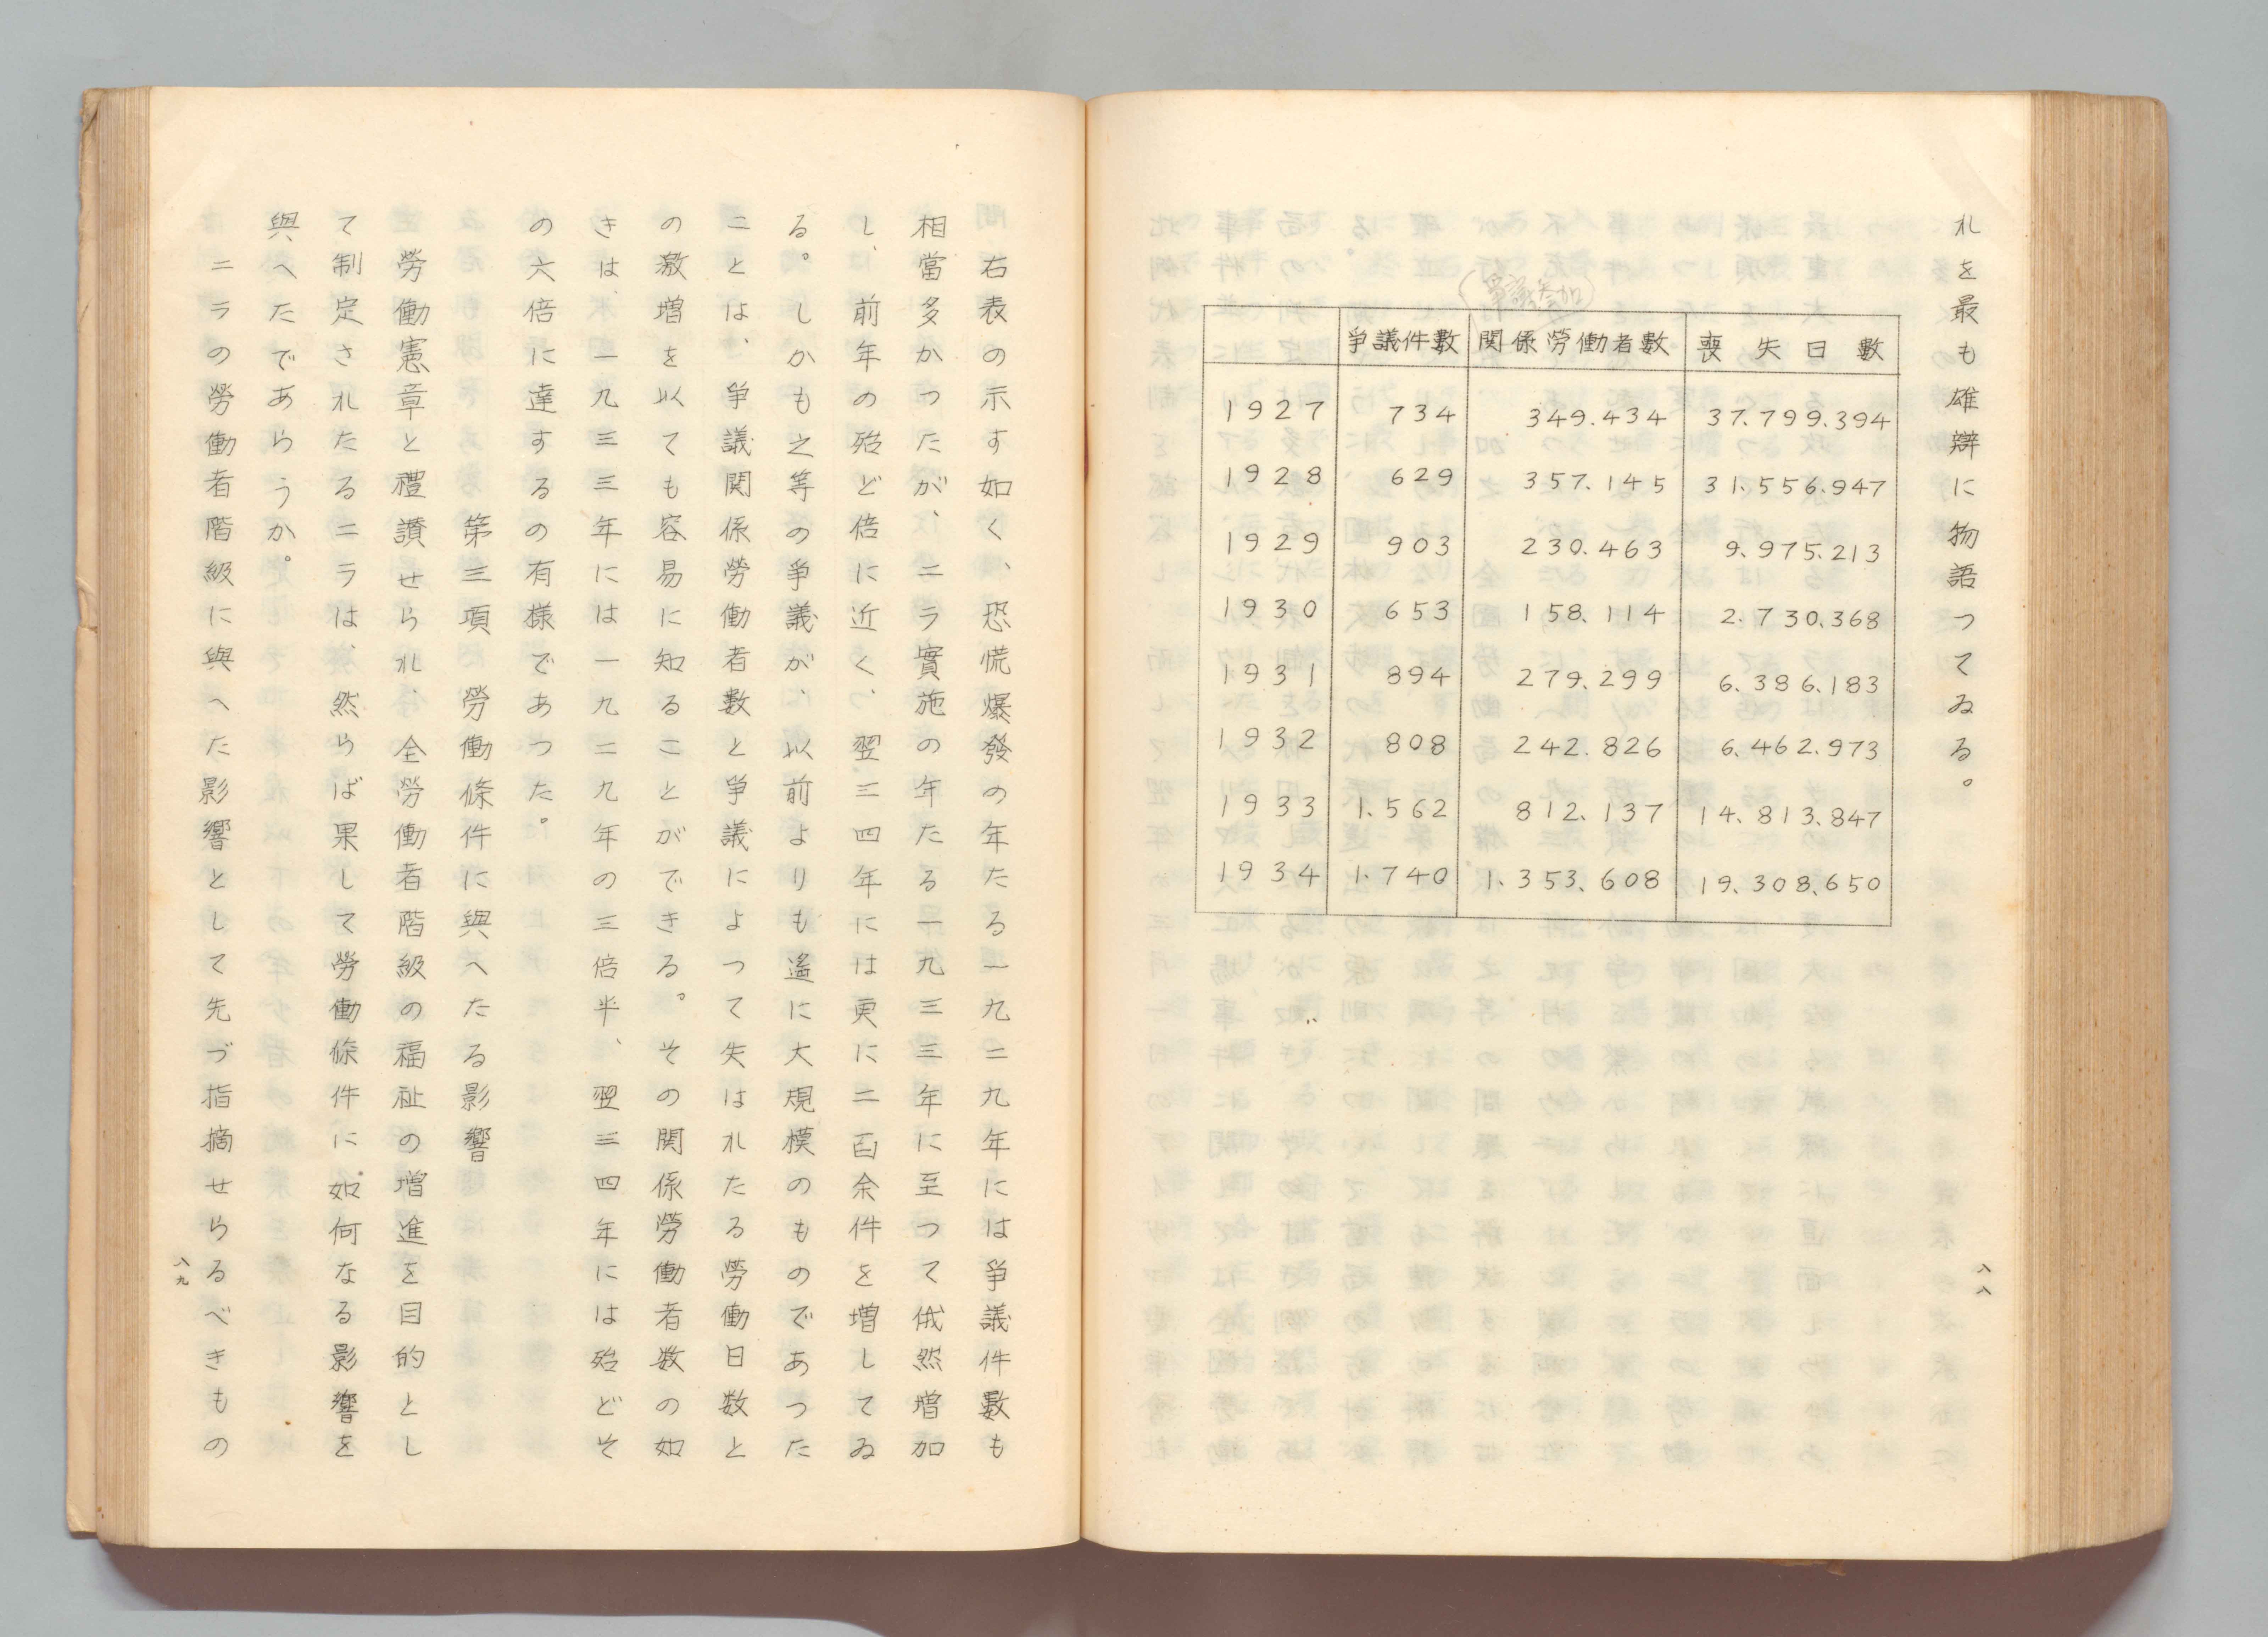 れを最も雄辯に物語つてゐる。
(爭議参加)
爭議件數 関係勞働者數 喪失日數
1927 734 349.434 37.799.394
1928 629 357.145 31.556.947
1929 903 230.463 9.975.213
1930 653 158.114 2.730.368
1931 894 279.299 6.386.183
1932 808 242.826 6.462.973
1933 1.562 812.137 14.813.847
1934 1.740 1.353.608 19.308.650
八八
右表の示す如く、恐慌爆發の年たる一九二九年には爭議件數も
相當多かつたが、ニラ實施の年たる一九三三年に至つて俄然増加
し、前年の殆ど倍に近く、翌三四年には更に二百余件を増してゐ
る。しかも之等の爭議が、以前よりも遙に大規模のものであつた
ことは、爭議関係勞働者數と爭議によつて失はれたる勞働日数と
の激増を以ても容易に知ることができる。その関係勞働者数の如
きは、一九三三年には一九二九年の三倍半、翌三四年には殆どそ
の六倍に達するの有様であつた。
第三項 勞働條件に與へたる影響
勞働憲章と禮讃せられ、全勞働者階級の福祉の増進を目的とし
て制定されたるニラは、然らば果して勞働條件に如何なる影響を
與へたであらうか。
ニラの勞働者階級に與へた影響として先づ指摘せらるべきもの
八九